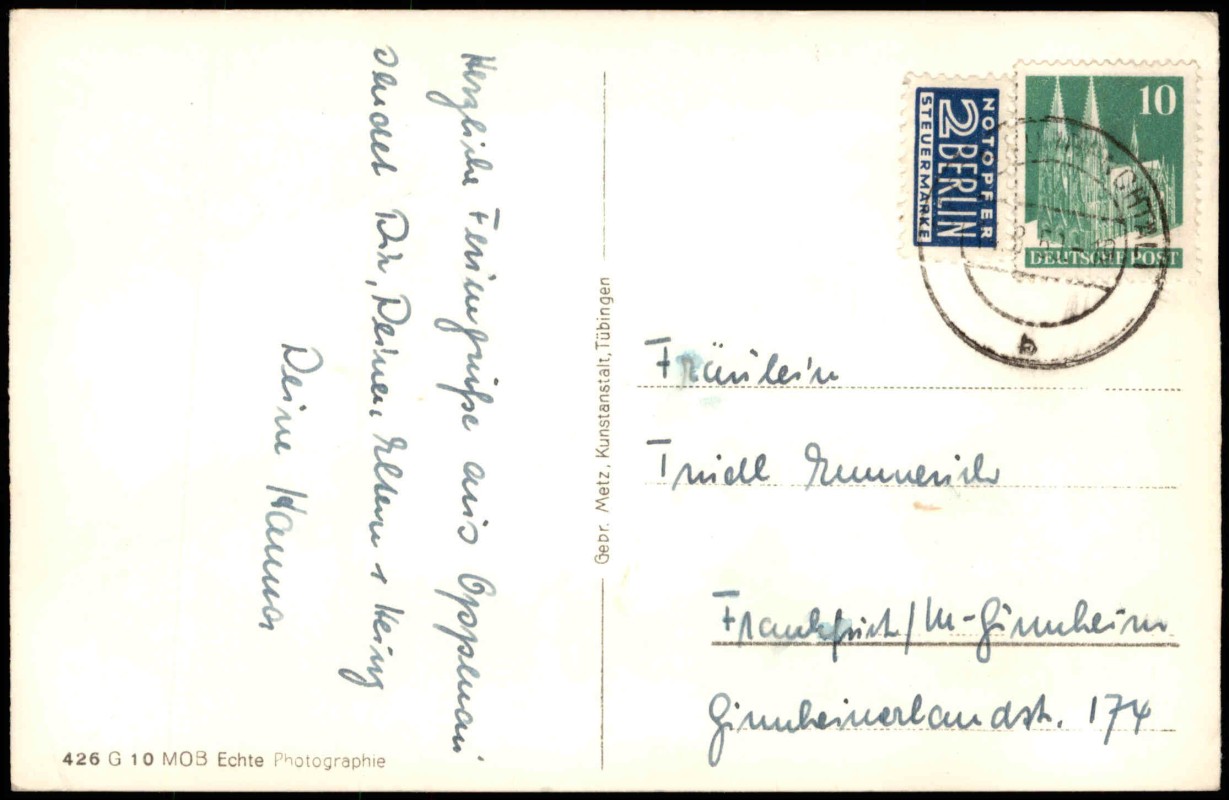 Herzliche Feriengrüße aus Oppenau
sendet Dir, Deinen Eltern u. Heinz
Deine Hanna
426 G 10 MOB Echte Photographie
Gebr. Metz, Kunstanstalt, Tübingen
NOTOPFER
2 BERLIN
STEUERMARKE
10
DEUTSCHE POST
b
Fräulein
Trudl Emmerich
Frankfurt/M-Ginnheim
Ginnheimerlandstr. 174